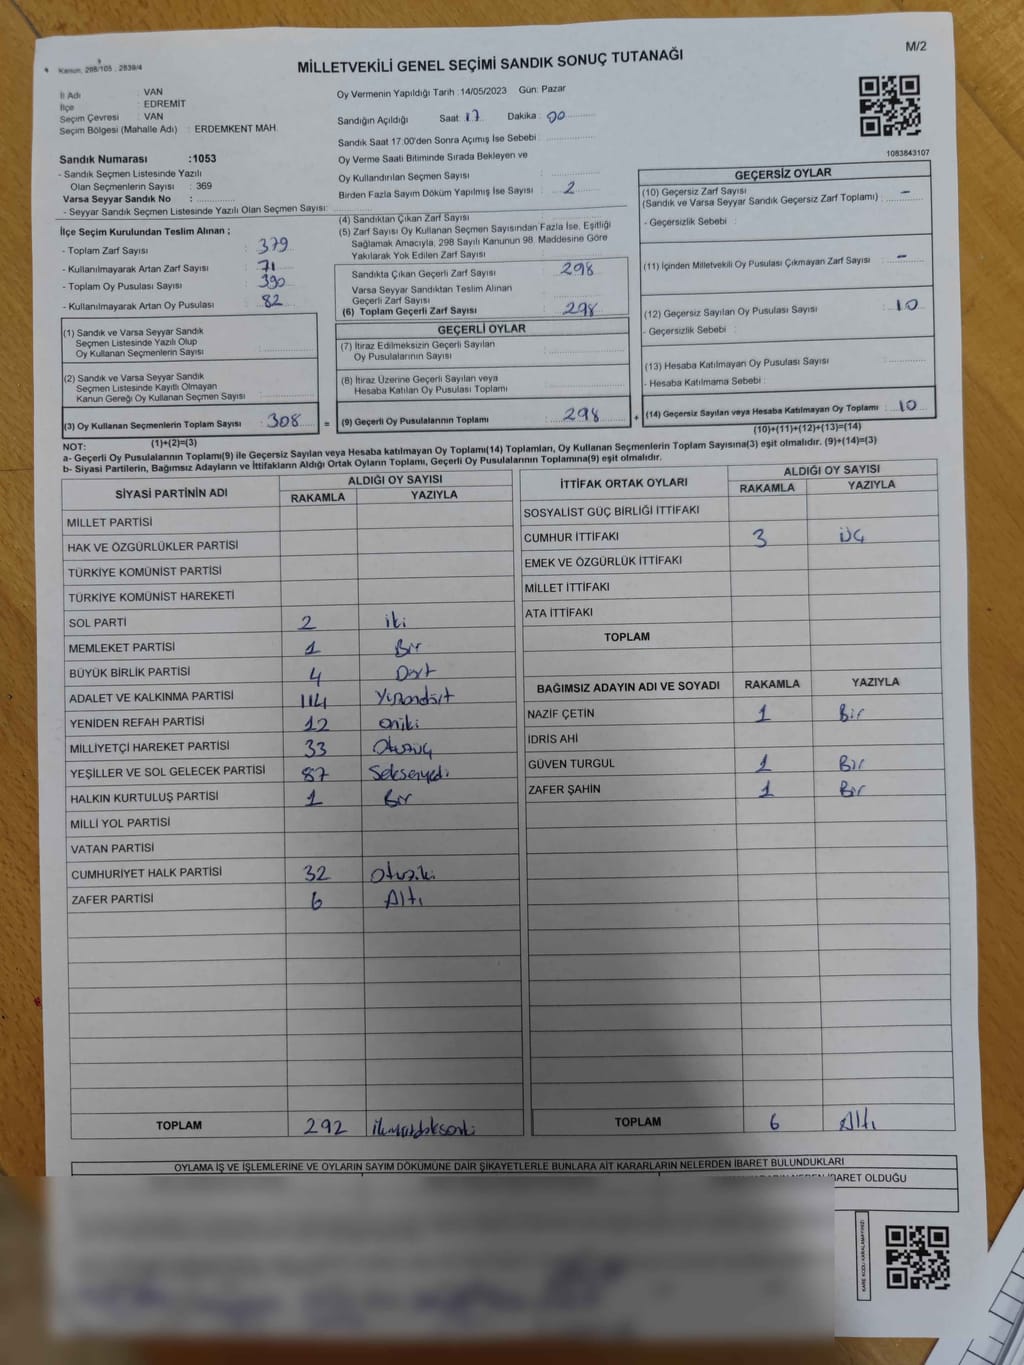 M/2
Kanun: 298/105 , 2839/4
MİLLETVEKİLİ GENEL SEÇİMİ SANDIK SONUÇ TUTANAĞI
İl Adı : VAN
İlçe : EDREMİT
Seçim Çevresi : VAN
Seçim Bölgesi (Mahalle Adı) : ERDEMKENT MAH.
Sandık Numarası :1053
- Sandık Seçmen Listesinde Yazılı
Olan Seçmenlerin Sayısı : 369
Varsa Seyyar Sandık No :
- Seyyar Sandık Seçmen Listesinde Yazılı Olan Seçmen Sayısı:
Oy Vermenin Yapıldığı Tarih :14/05/2023 Gün: Pazar
Sandığın Açıldığı Saat: 17 Dakika : 00
Sandık Saat 17:00'den Sonra Açımış İse Sebebi :
Oy Verme Saati Bitiminde Sırada Bekleyen ve
Oy Kullandırılan Seçmen Sayısı :
Birden Fazla Sayım Döküm Yapılmış İse Sayısı : 2
1083843107
İlçe Seçim Kurulundan Teslim Alınan ;
- Toplam Zarf Sayısı : 379
- Kullanılmayarak Artan Zarf Sayısı : 71
- Toplam Oy Pusulası Sayısı : 390
- Kullanılmayarak Artan Oy Pusulası : 82
(1) Sandık ve Varsa Seyyar Sandık
Seçmen Listesinde Yazılı Olup
Oy Kullanan Seçmenlerin Sayısı :
(2) Sandık ve Varsa Seyyar Sandık
Seçmen Listesinde Kayıtlı Olmayan
Kanun Gereği Oy Kullanan Seçmen Sayısı :
(3) Oy Kullanan Seçmenlerin Toplam Sayısı : 308
(1)+(2)=(3)
(4) Sandıktan Çıkan Zarf Sayısı :
(5) Zarf Sayısı Oy Kullanan Seçmen Sayısından Fazla İse, Eşitliği
Sağlamak Amacıyla, 298 Sayılı Kanunun 98. Maddesine Göre
Yakılarak Yok Edilen Zarf Sayısı :
Sandıkta Çıkan Geçerli Zarf Sayısı : 298
Varsa Seyyar Sandıktan Teslim Alınan
Geçerli Zarf Sayısı :
(6) Toplam Geçerli Zarf Sayısı : 298
GEÇERLİ OYLAR
(7) İtiraz Edilmeksizin Geçerli Sayılan
Oy Pusulalarının Sayısı :
(8) İtiraz Üzerine Geçerli Sayılan veya
Hesaba Katılan Oy Pusulası Toplamı :
= (9) Geçerli Oy Pusulalarının Toplamı : 298
GEÇERSİZ OYLAR
(10) Geçersiz Zarf Sayısı
(Sandık ve Varsa Seyyar Sandık Geçersiz Zarf Toplamı) : -
- Geçersizlik Sebebi :
(11) İçinden Milletvekili Oy Pusulası Çıkmayan Zarf Sayısı : -
(12) Geçersiz Sayılan Oy Pusulası Sayısı : 10
- Geçersizlik Sebebi :
(13) Hesaba Katılmayan Oy Pusulası Sayısı :
- Hesaba Katılmama Sebebi :
+ (14) Geçersiz Sayılan veya Hesaba Katılmayan Oy Toplamı : 10
(10)+(11)+(12)+(13)=(14)
NOT:
a- Geçerli Oy Pusulalarının Toplamı(9) ile Geçersiz Sayılan veya Hesaba katılmayan Oy Toplamı(14) Toplamları, Oy Kullanan Seçmenlerin Toplam Sayısına(3) eşit olmalıdır. (9)+(14)=(3)
b- Siyasi Partilerin, Bağımsız Adayların ve İttifakların Aldığı Ortak Oyların Toplamı, Geçerli Oy Pusulalarının Toplamına(9) eşit olmalıdır.
SİYASİ PARTİNİN ADI ALDIĞI OY SAYISI
RAKAMLA YAZIYLA
MİLLET PARTİSİ
HAK VE ÖZGÜRLÜKLER PARTİSİ
TÜRKİYE KOMÜNİST PARTİSİ
TÜRKİYE KOMÜNİST HAREKETİ
SOL PARTİ 2 iki
MEMLEKET PARTİSİ 1 Bir
BÜYÜK BİRLİK PARTİSİ 4 Dört
ADALET VE KALKINMA PARTİSİ 114 Yüzondört
YENİDEN REFAH PARTİSİ 12 oniki
MİLLİYETÇİ HAREKET PARTİSİ 33 Otuzüç
YEŞİLLER VE SOL GELECEK PARTİSİ 87 Seksenyedi
HALKIN KURTULUŞ PARTİSİ 1 Bir
MİLLİ YOL PARTİSİ
VATAN PARTİSİ
CUMHURİYET HALK PARTİSİ 32 Otuziki
ZAFER PARTİSİ 6 Altı
TOPLAM 292
İTTİFAK ORTAK OYLARI ALDIĞI OY SAYISI
RAKAMLA YAZIYLA
SOSYALİST GÜÇ BİRLİĞİ İTTİFAKI
CUMHUR İTTİFAKI 3 üç
EMEK VE ÖZGÜRLÜK İTTİFAKI
MİLLET İTTİFAKI
ATA İTTİFAKI
TOPLAM
BAĞIMSIZ ADAYIN ADI VE SOYADI RAKAMLA YAZIYLA
NAZİF ÇETİN 1 Bir
İDRİS AHİ
GÜVEN TURGUL 1 Bir
ZAFER ŞAHİN 1 Bir
TOPLAM 6 Altı
OYLAMA İŞ VE İŞLEMLERİNE VE OYLARIN SAYIM DÖKÜMÜNE DAİR ŞİKAYETLERLE BUNLARA AİT KARARLARIN NELERDEN İBARET BULUNDUKLARI
İBARET OLDUĞU
KARE KODU KARALAMAYINIZ!